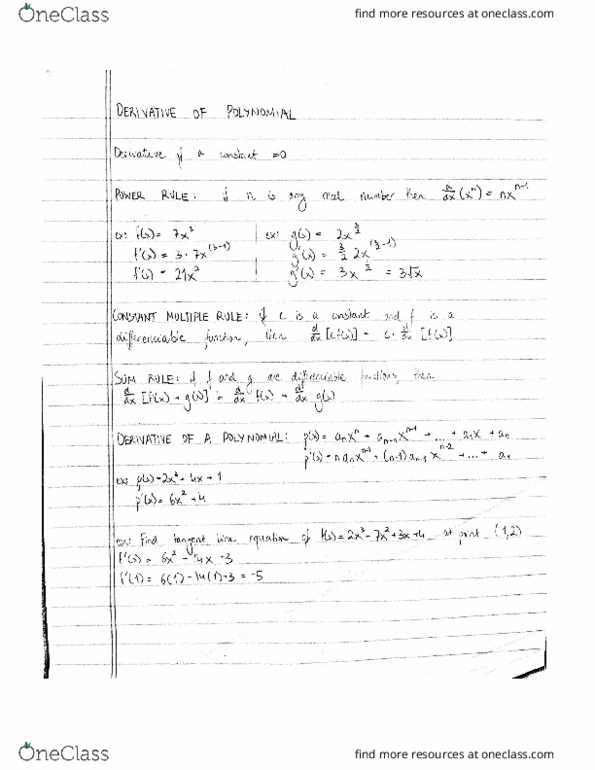 OneClass
find more resources at oneclass.com
DERIVATIVE OF POLYNOMIAL
Derivative of a constant =0
POWER RULE: if n is any real number then d/dx (xⁿ) = nxⁿ⁻¹
ex: f(x) = 7x³ ex: g(x) = 2x^(3/2)
f'(x) = 3·7x^(3-1) g'(x) = 3/2 2x^(3/2-1)
f'(x) = 21x² g'(x) = 3x^(1/2) = 3√x
CONSTANT MULTIPLE RULE: if c is a constant and f is a
differenciable function, then d/dx [c f(x)] = c · d/dx [f(x)]
SUM RULE: if f and g are differenciable functions, then
d/dx [f(x) + g(x)] = d/dx f(x) + d/dx g(x)
DERIVATIVE OF A POLYNOMIAL: p(x) = aₙxⁿ + aₙ₋₁xⁿ⁻¹ + ... + a₁x + a₀
p'(x) = n aₙxⁿ⁻¹ + (n-1) aₙ₋₁ xⁿ⁻² + ... + a₁
ex: p(x) = 2x³ 4x + 1
p'(x) = 6x² + 4
ex: Find tangent line equation of f(x) = 2x³ - 7x² + 3x + 4 at point (1,2)
f'(x) = 6x² - 14x 3
f'(1) = 6(1) - 14(1) + 3 = -5
OneClass
find more resources at oneclass.com